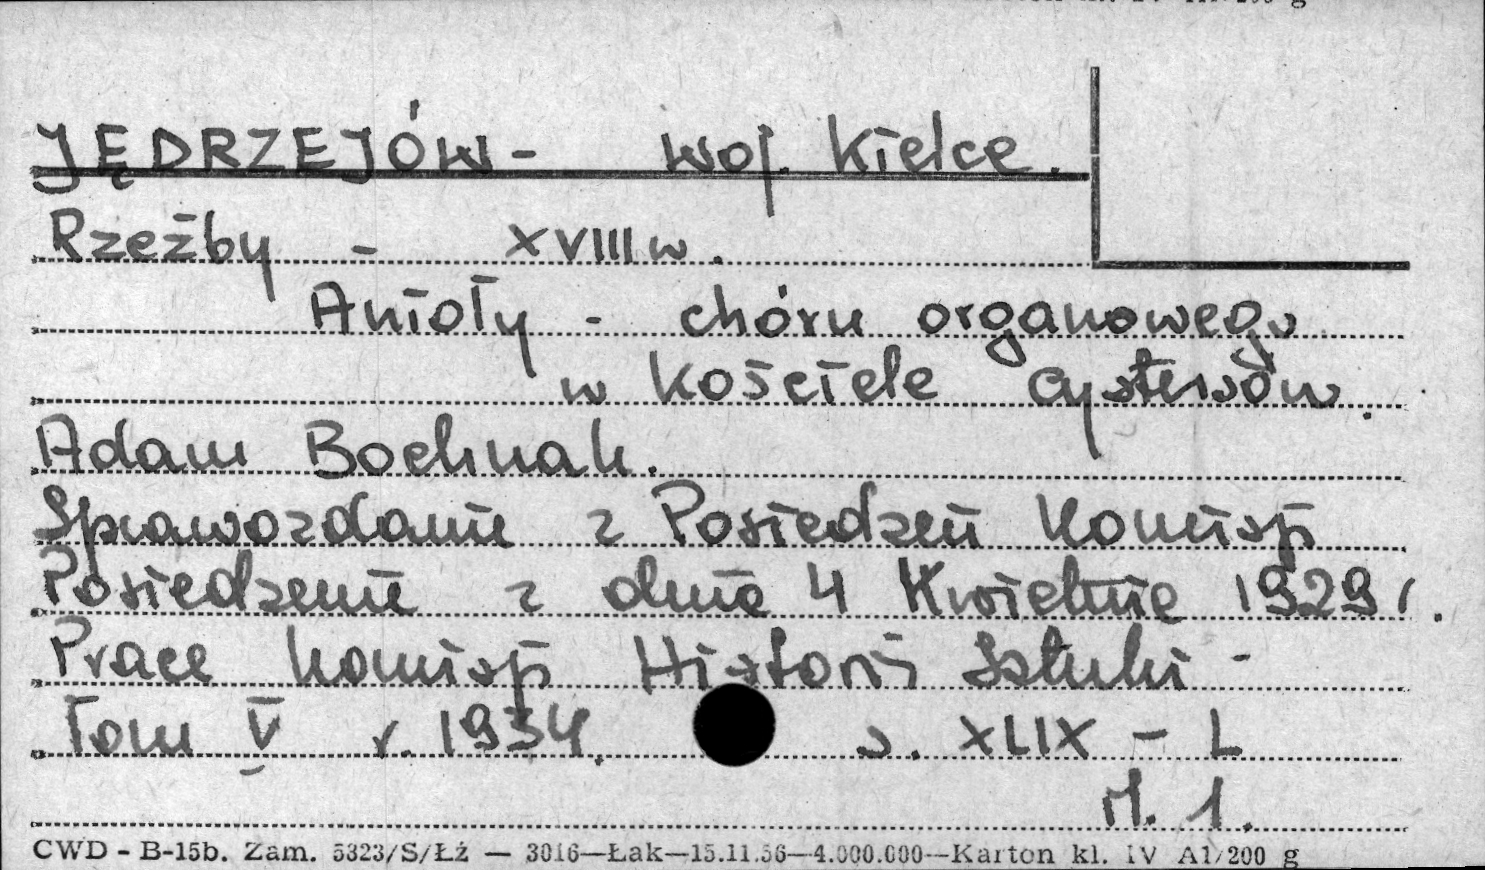 JĘDRZEJÓW - woj. Kielce.
Rzeźby - XVIII w.
Anioły - chóru organowego
w Kościele cystersów.
Adam Bochnak.
Sprawozdanie z Posiedzeń Komisji
Posiedzenie z dnia 4 Kwietnia 1929 r.
Prace Komisji Historii Sztuki -
Tom V r. 1934. s. XLIX - L
il. 1.
CWD - B-15b. Zam. 5323/S/Łź — 3016—Łak—15.11.56—4.000.000—Karton kl. IV A1/200 g